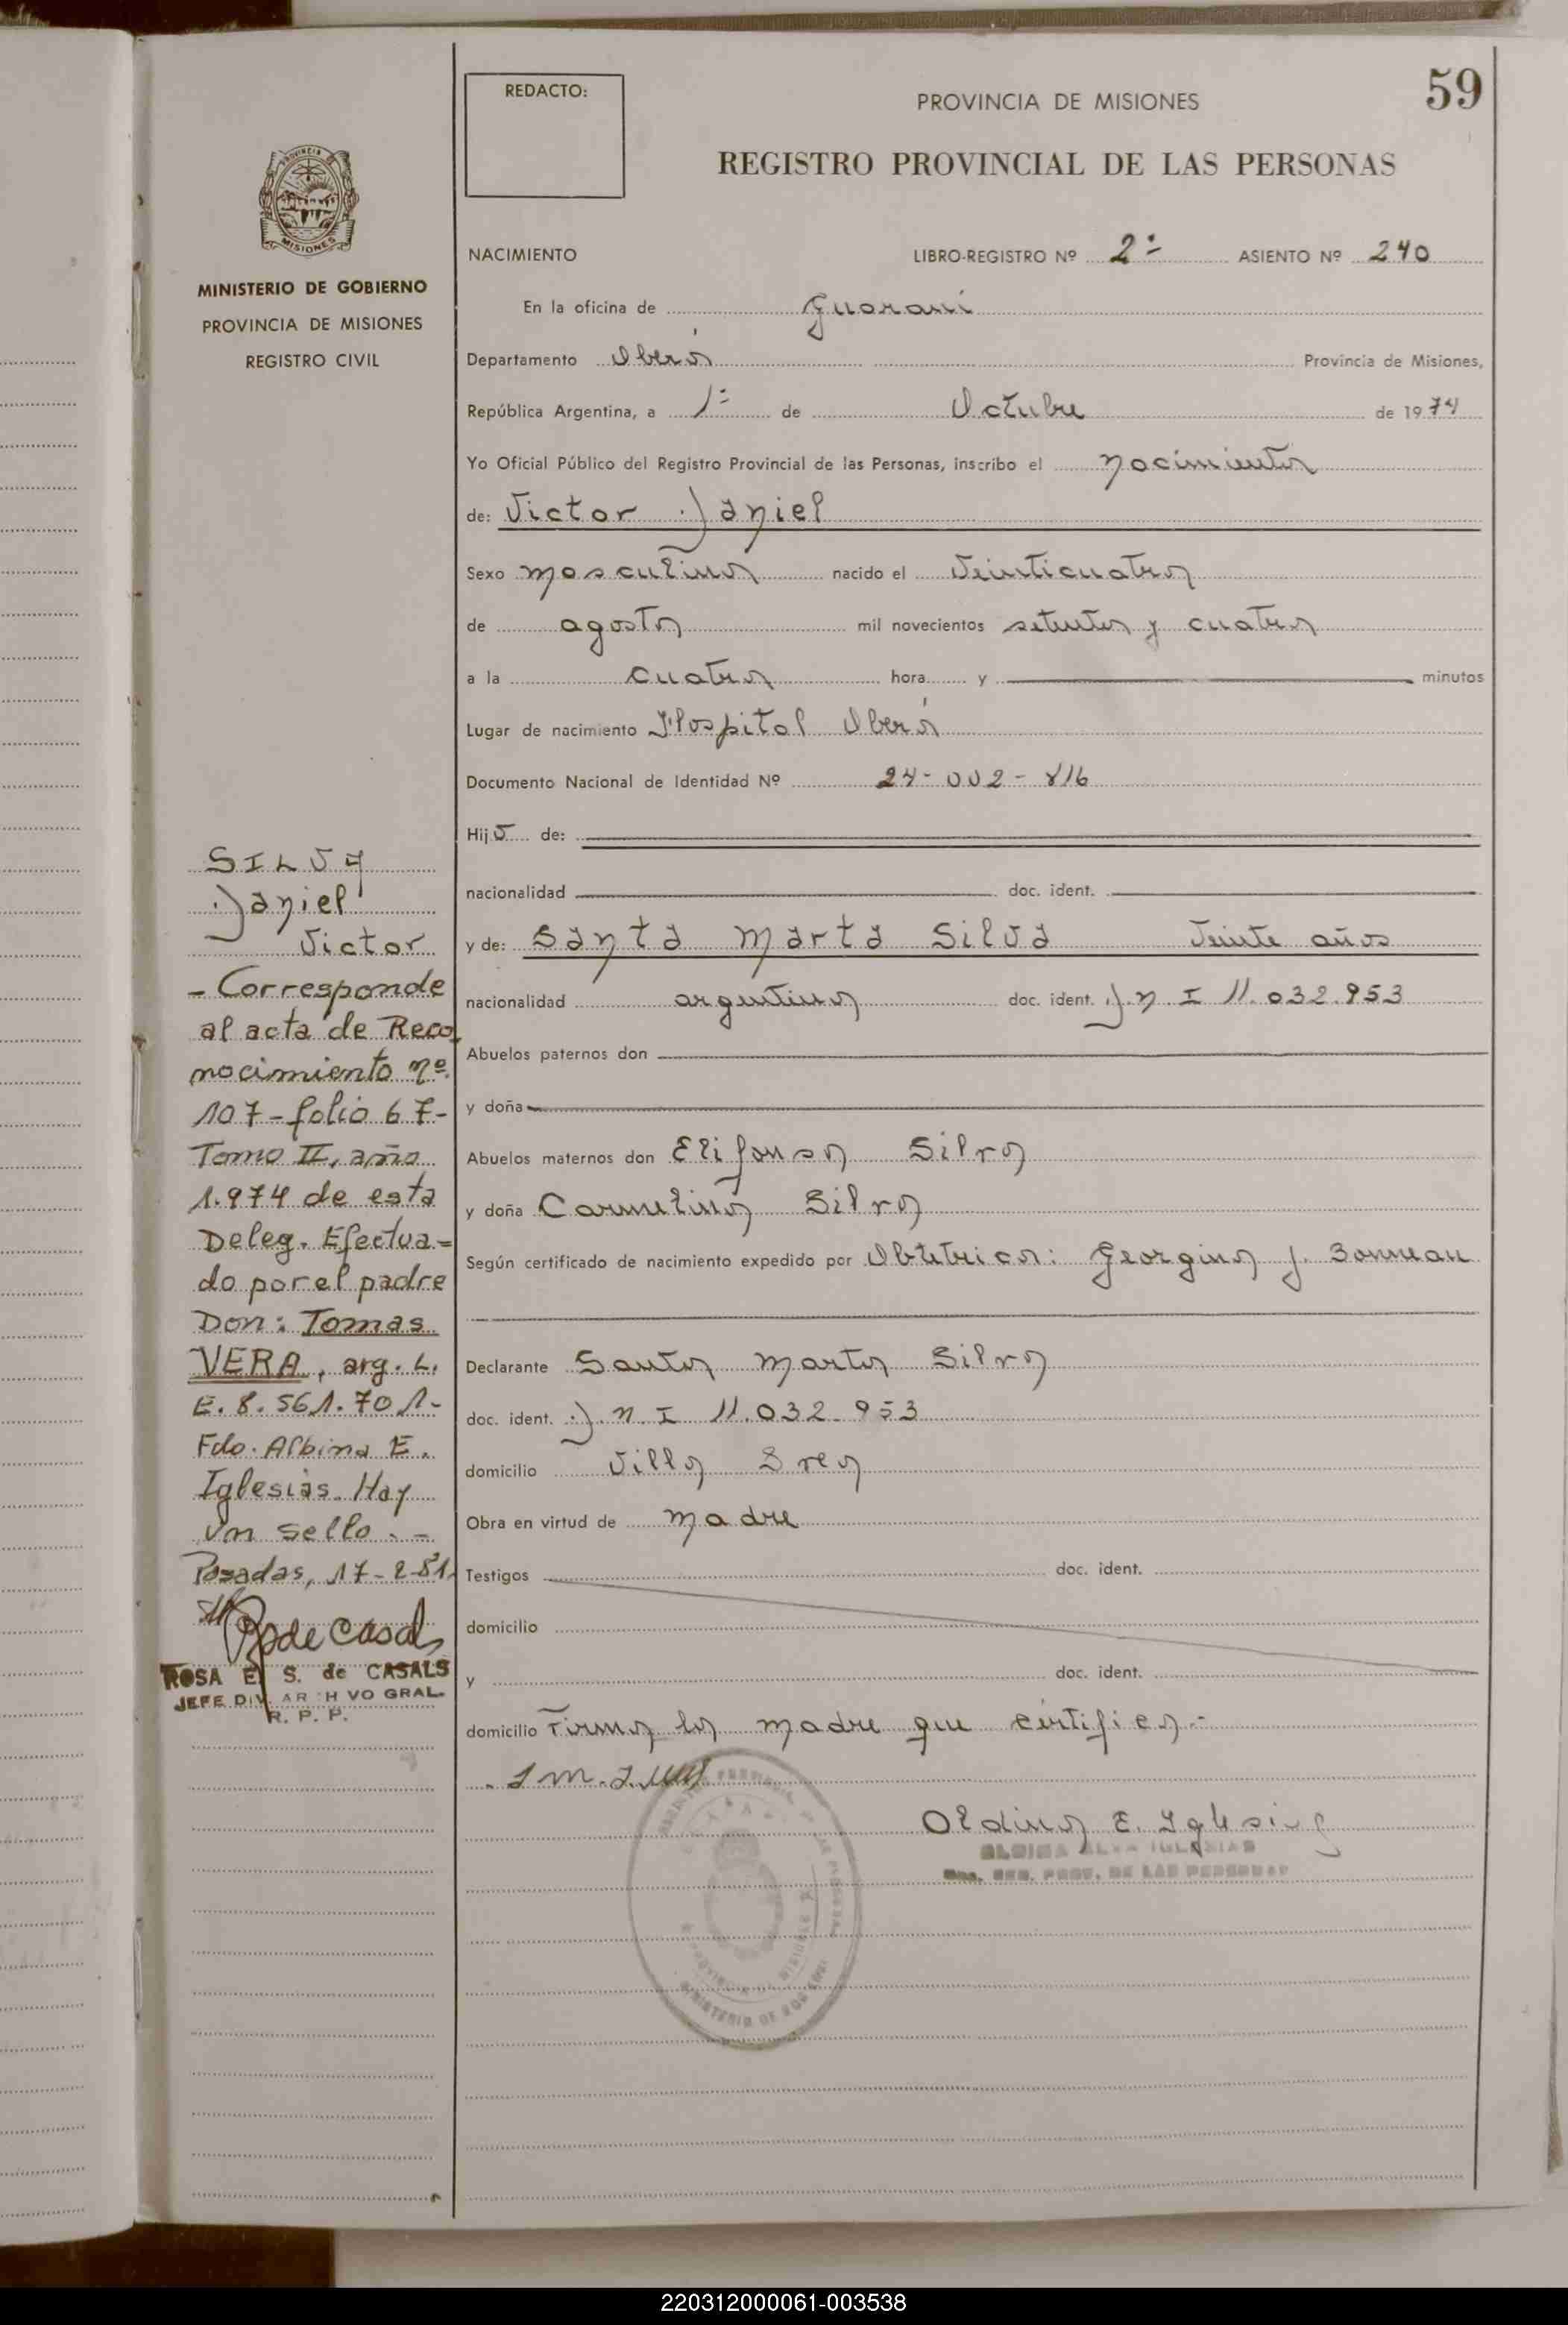 59
REDACTO:
PROVINCIA DE MISIONES
REGISTRO PROVINCIAL DE LAS PERSONAS
PROVINCIA DE
MISIONES
MINISTERIO DE GOBIERNO
PROVINCIA DE MISIONES
REGISTRO CIVIL
NACIMIENTO LIBRO-REGISTRO Nº 2º ASIENTO Nº 240
En la oficina de Guarani
Departamento Oberá Provincia de Misiones,
República Argentina, a 1º de Octubre de 1974
Yo Oficial Público del Registro Provincial de las Personas, inscribo el nacimiento
de: Victor Daniel
Sexo masculino nacido el Veinticuatro
de agosto mil novecientos setenta y cuatro
a la cuatro hora y minutos
Lugar de nacimiento Hospital Oberá
Documento Nacional de Identidad Nº 24-002-816
Hijo de:
nacionalidad doc. ident.
y de: Santa Marta Silva Veinte años
nacionalidad argentina doc. ident. D.N.I 11.032.953
Abuelos paternos don
y doña
Abuelos maternos don Elifonso Silva
y doña Carmelina Silva
Según certificado de nacimiento expedido por Obtetrica: Georgina J. Bonneau
Declarante Santa Marta Silva
doc. ident. D.N.I 11.032.953
domicilio Villa
Obra en virtud de madre
Testigos doc. ident.
domicilio
y doc. ident.
domicilio Firma la madre que certifica.-
SILVA
Daniel
Victor
- Corresponde
al acta de Reco
nocimiento nº
107-folio 67-
Tomo II, año
1.974 de esta
Deleg. Efectua=
do por el padre
Don: Tomas
VERA, arg. L.
E. 8.561.701-
Fdo. Albina E.
Iglesias. Hay
un sello.-
Posadas, 17-2-81.
R de Casals
ROSA E. S. de CASALS
JEFE DIV. ARCHIVO GRAL.
R. P. P.
E. Iglesias
IGLESIAS
REG. PROV. DE LAS PERSONAS
220312000061-003538